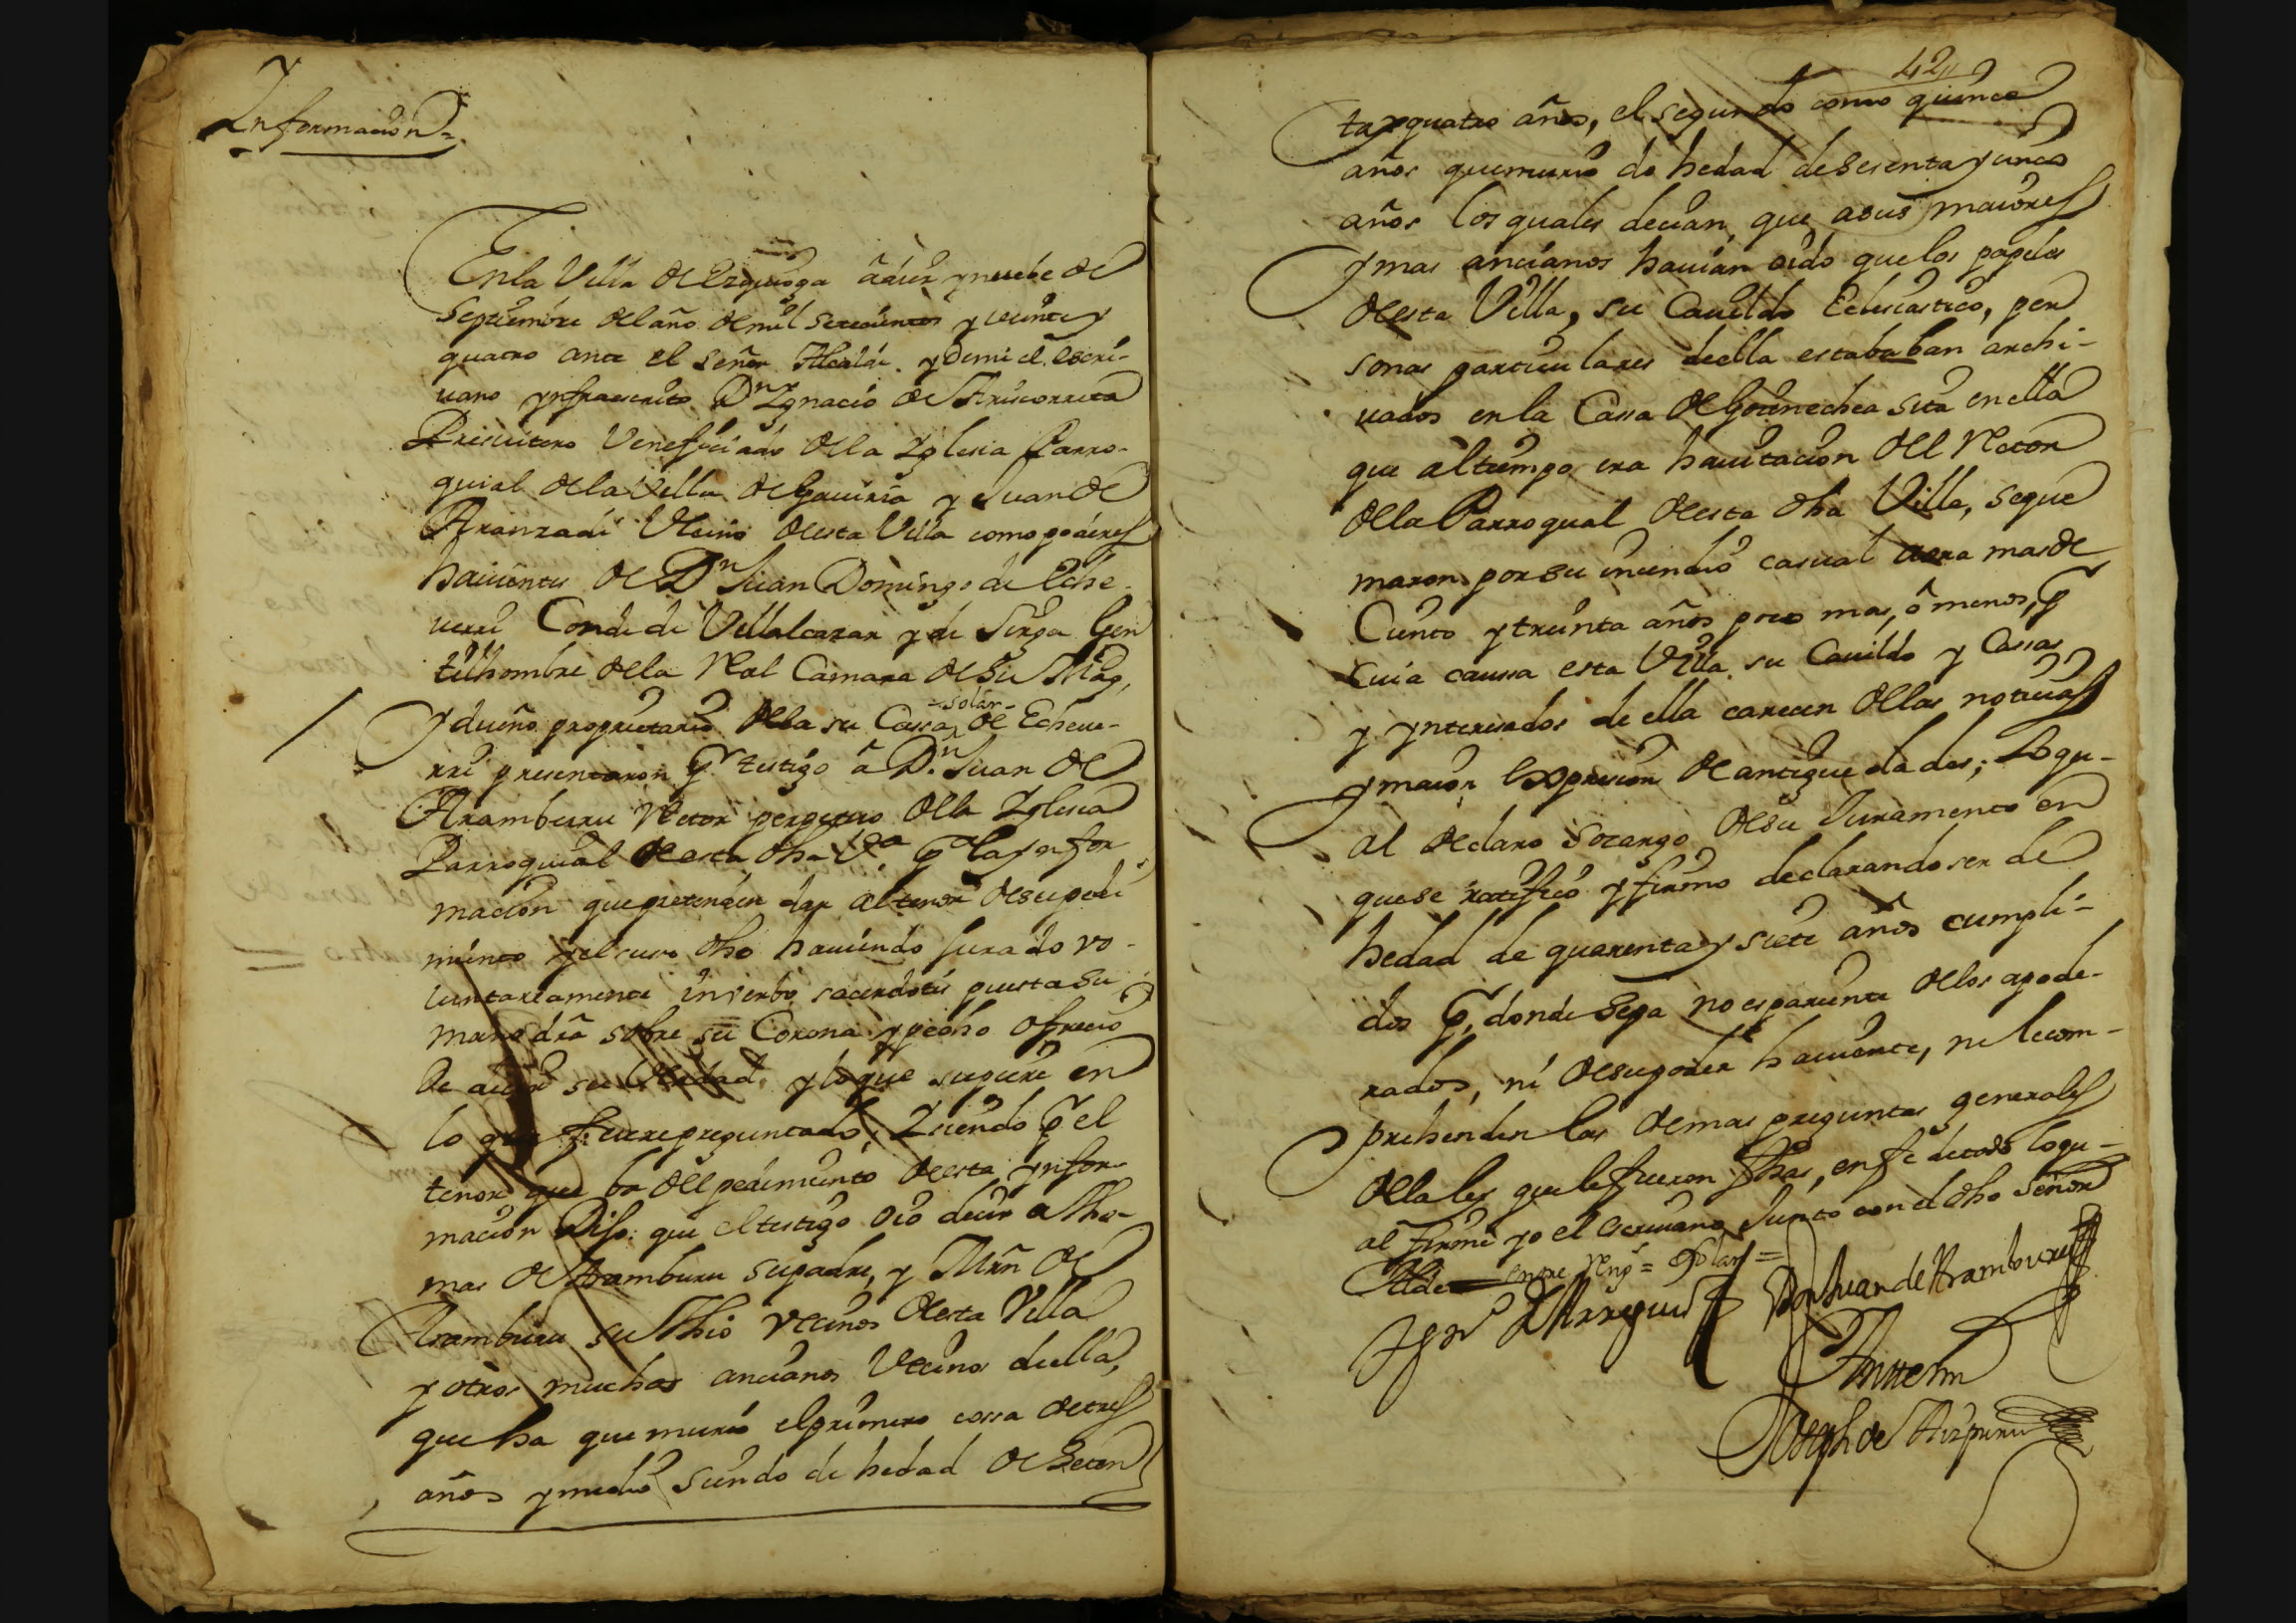 Informacion =
En la Villa de Ezquioga â diez y nuebe de
Septiembre del año de mil setecientos y veinte y
quatro ante el señor Alcalde y de mi el escri-
uano ynfraescrito Dn Ygnacio de Ariscorreta
Presuitero Veneficiado de la Yglesia Parro-
quial de la Villa de Gauiria y Juan de
Aranzadi Vecino de esta Villa como poderes
hauientes de Dn Juan Domingo de Eche-
uerri Conde de Villalcazar y de Sirga Gen
tilhombre de la Real Camara de Su Mag,
y dueño proprietario de la su Cassa -solar- de Echeue-
rri presentaron pr testigo â Dn Juan de
Aramburu Retor perpetuo de la Yglesia
Parroquial de esta dha Va. pa la ynfor
macion que pretenden dar al tenor de su pedi
miento y el suso dho hauiendo jurado vo-
luntareamente in verbo sacerdotis puesta su
mano dra sobre su Corona y pecho ofrecio
de decir su Verdad, y lo que supiere en
lo que fuere preguntado; Y siendo pr el
tenor que ba del pedimiento de esta ynfor-
macion Dijo: que el testigo oio decir a Tho-
mas de Aramburu su padre, y Mrn de
Aramburu su thio Vecinos de esta Villa
y otros muchos ancianos Vecinos de ella,
que ha que murio el primero cossa de tres
años y medio siendo de hedad de Seten
42
ta y quatro años, el segundo como quince
años que murio de hedad de sesenta y cinco
años los quales decian, que a sus maiores
y mas ancianos hauian oido que los papeles
de esta Villa, su Cauildo Eclesiastico, per
sonas particulares de ella estababan archi-
uados en la Cassa de Goienechea sita en ella
que al tiempo era hauitacion del Retor
de la Parroqual de esta dha Villa, se que
maron por su incendio casual aora mas de
Ciento y treinta años poco mas, ô menos, pr
cuia caussa esta Villa su Cauildo y Cassas
y ynteresados de ella carecen de las noticias
y maior Expresion de antiguedades; Lo qu-
al declaro so cargo de su Juramento en
que se ratifico y firmo declarando ser de
hedad de quarenta y siete años cumpli-
dos pr donde sepa no es pariente de los apode-
rados, ni de su poder hauiente, ni le com-
prehenden las demas preguntas generales
de la ley que le fueron fhas, en fe de todo lo qu-
al firme yo el escriuano Junto con el dho señor
Alde entre Reng = Solar =
Don Juan de Aramburu
Ante mi
Joseph de Aizpuru